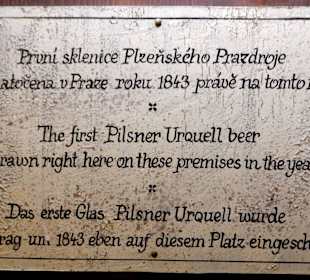 První sklenice Plzeňského Prazdroje
atočena v Praze roku 1843 právě na tomto
The first Pilsner Urquell beer
rawn right here on these premises in the yea
Das erste Glas Pilsner Urquell wurde
rag un. 1843 eben auf diesem Platz eingesch